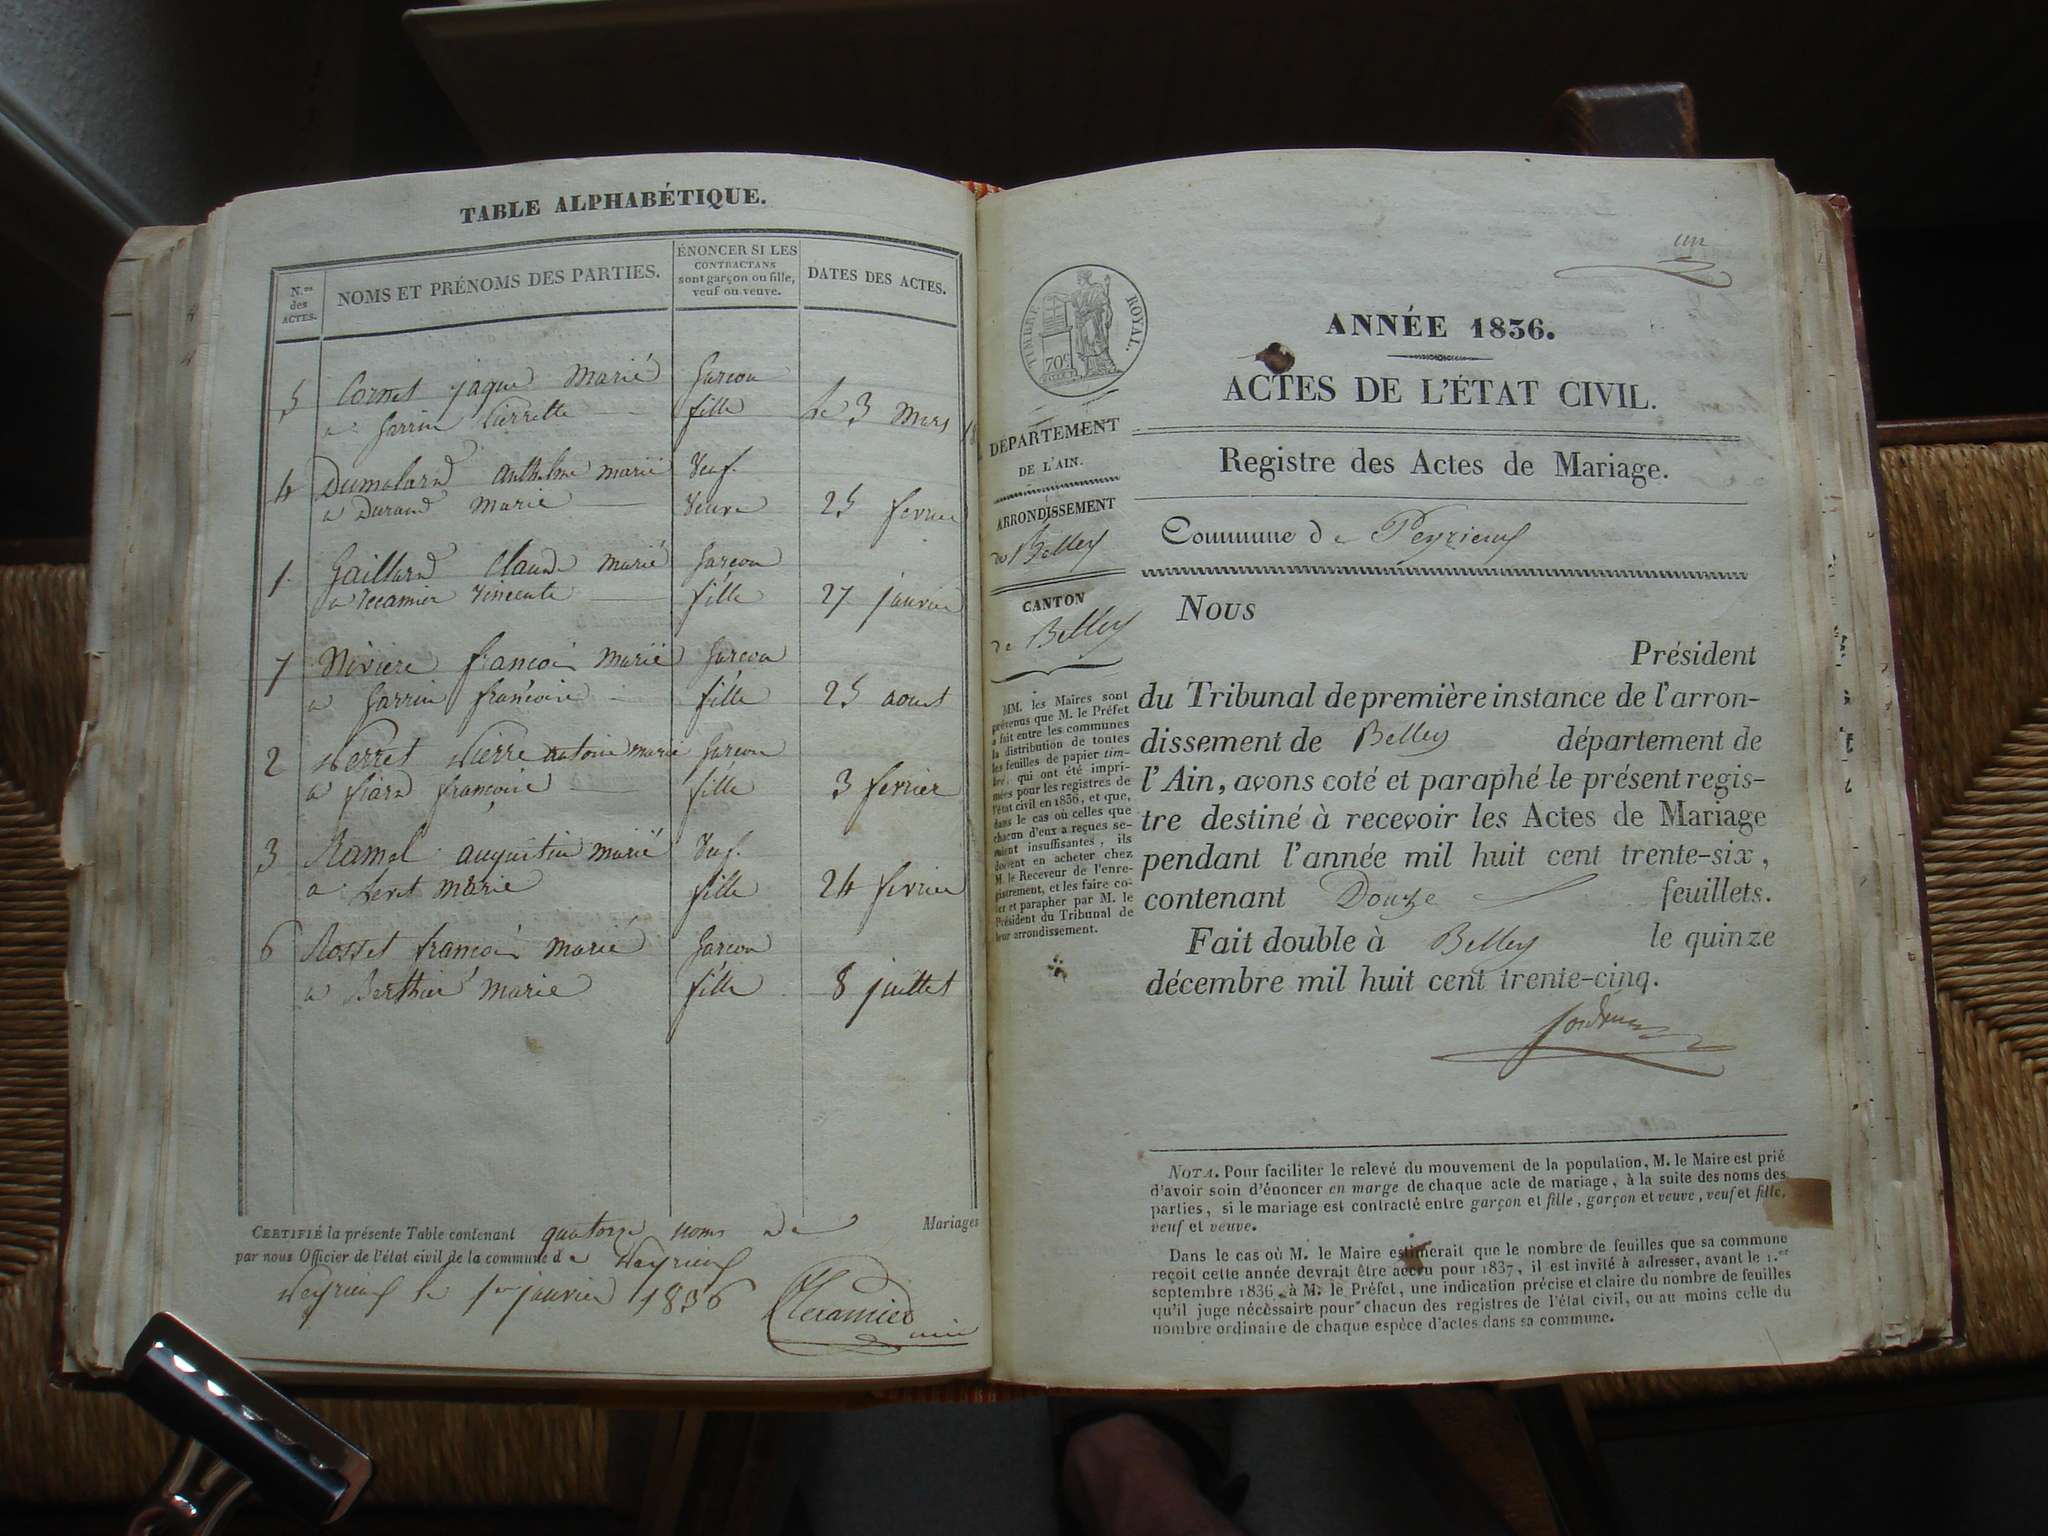 TABLE ALPHABÉTIQUE.
N.os des ACTES.
NOMS ET PRÉNOMS DES PARTIES.
ÉNONCER SI LES
CONTRACTANS
sont garçon ou fille,
veuf ou veuve.
DATES DES ACTES.
5 Cornet jaque Marié Garcon
a Garrin Pierrette fille Le 3 Mars
4 Dumolard anthelme marié Veuf
a Durand Marie Veuve 25 fevrier
1 Gaillard Claude marié Garcon
a recamier Vincente fille 27 janvier
7 Riviere francois marié Garcon
a Garrin francoise fille 25 aout
2 Perret Pierre antoine marié Garcon
a fiard françoise fille 3 fevrier
3 Ramel augustin marié Veuf
a marie fille 24 fevrier
6 Rosset francois marié Garcon
a Berthier marie fille 8 juillet
CERTIFIÉ la présente Table contenant quatorze noms de Mariages
par nous Officier de l'état civil de la commune de Peyrieux
Peyrieux le 1er janvier 1836
un
TIMBRE ROYAL.
70c
ANNÉE 1836.
ACTES DE L'ÉTAT CIVIL.
DÉPARTEMENT
DE L'AIN.
Registre des Actes de Mariage.
ARRONDISSEMENT
de Belley
Commune de Peyrieux
CANTON
de Belley
MM. les Maires sont
prévenus que M. le Préfet
a fait entre les communes
la distribution de toutes
les feuilles de papier tim-
bré, qui ont été impri-
mées pour les registres de
l'état civil en 1836, et que,
dans le cas où celles que
chacun d'eux a reçues se-
raient insuffisantes, ils
doivent en acheter chez
M. le Receveur de l'enre-
gistrement, et les faire co-
ter et parapher par M. le
Président du Tribunal de
leur arrondissement.
Nous
Président
du Tribunal de première instance de l'arron-
dissement de Belley département de
l'Ain, avons coté et paraphé le présent regis-
tre destiné à recevoir les Actes de Mariage
pendant l'année mil huit cent trente-six,
contenant Douze feuillets.
Fait double à Belley le quinze
décembre mil huit cent trente-cinq.
NOTA. Pour faciliter le relevé du mouvement de la population, M. le Maire est prié
d'avoir soin d'énoncer en marge de chaque acte de mariage, à la suite des noms des
parties, si le mariage est contracté entre garçon et fille, garçon et veuve, veuf et fille,
veuf et veuve.
Dans le cas où M. le Maire estimerait que le nombre de feuilles que sa commune
reçoit cette année devrait être accru pour 1837, il est invité à adresser, avant le 1.er
septembre 1836, à M. le Préfet, une indication précise et claire du nombre de feuilles
qu'il juge nécessaire pour chacun des registres de l'état civil, ou au moins celle du
nombre ordinaire de chaque espèce d'actes dans sa commune.